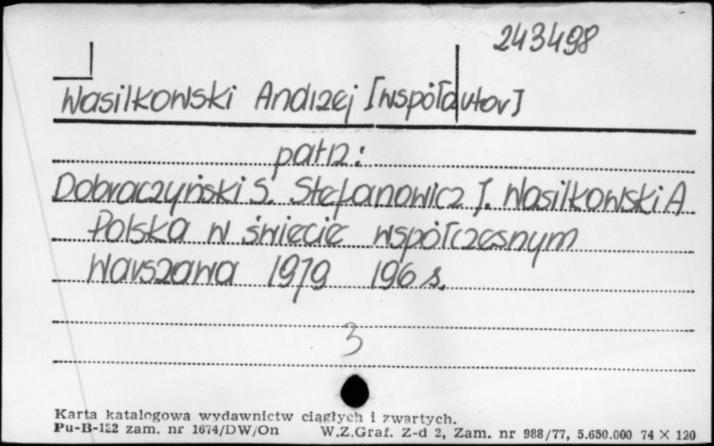 243498
Wasilkowski Andrzej [współautor]
patrz:
Dobraczyński S. Stefanowicz J. Wasilkowski A
Polska w świecie współczesnym
Warszawa 1979 196 s.
3
Karta katalogowa wydawnictw ciągłych i zwartych.
Pu-B-122 zam. nr 1674/DW/On W.Z.Graf. Z-d 2, Zam. nr 988/77, 5.650.000 74 × 120